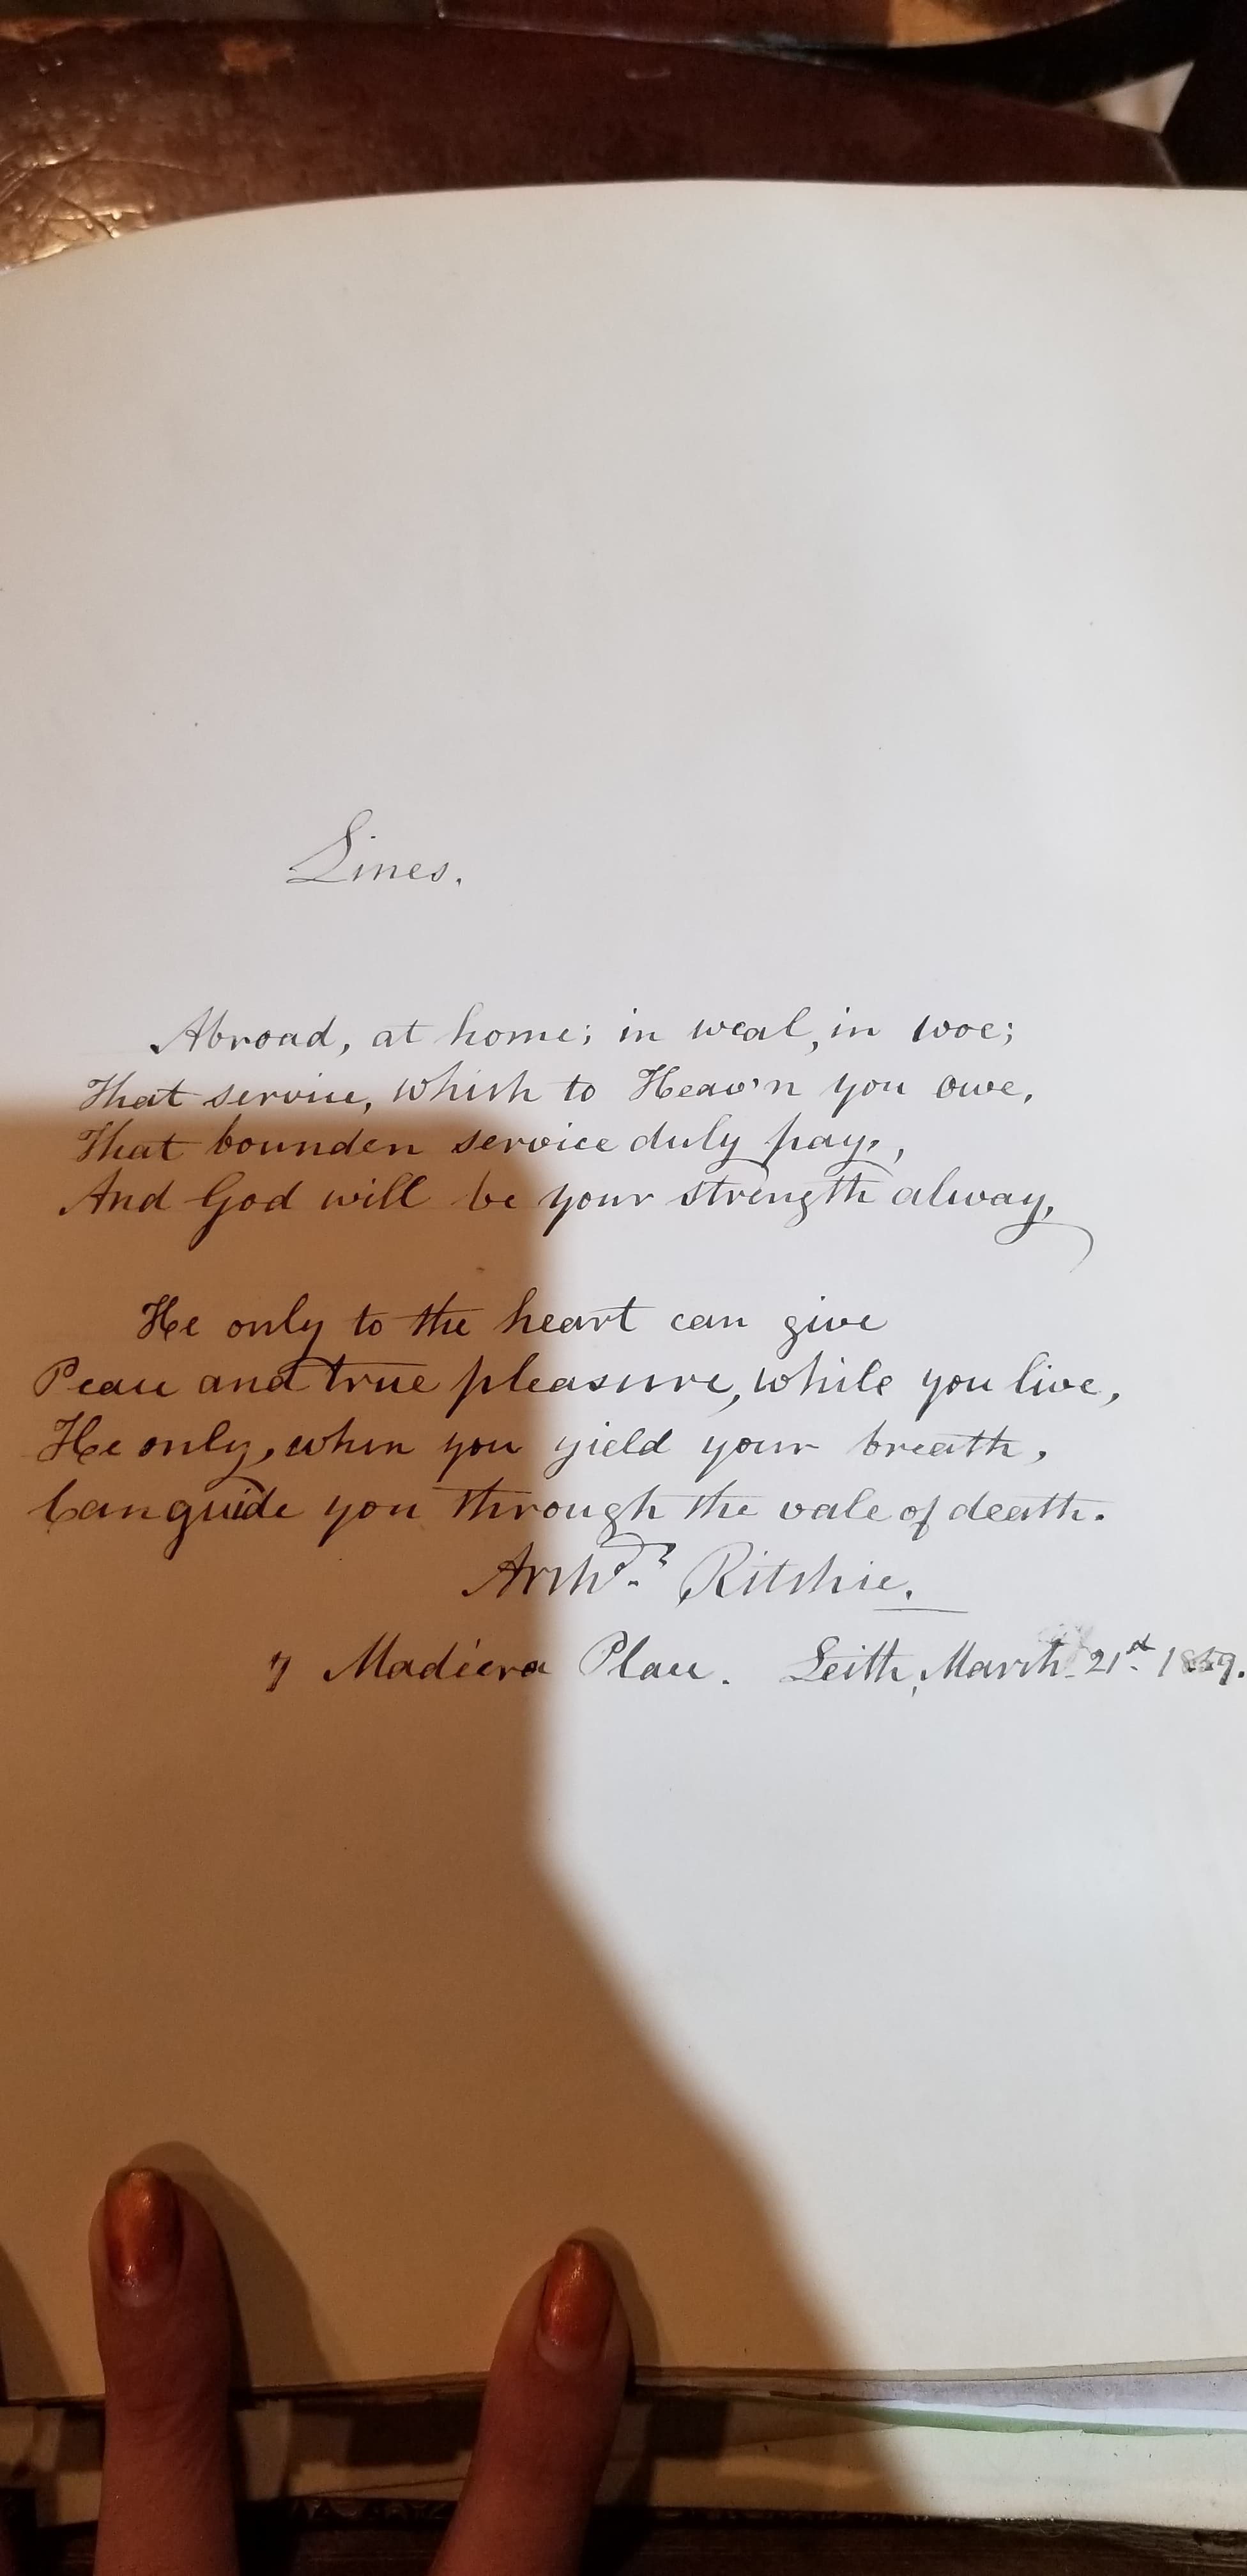 Lines.
Abroad, at home; in weal, in woe;
That service, which to Heav'n you owe,
That bounden service duly pay,
And God will be your strength alway,
He only to the heart can give
Peace and true pleasure, while you live,
He only, when you yield your breath,
Can guide you through the vale of death.
Archd. Ritchie.
7 Madiera Place. Leith, March 21st